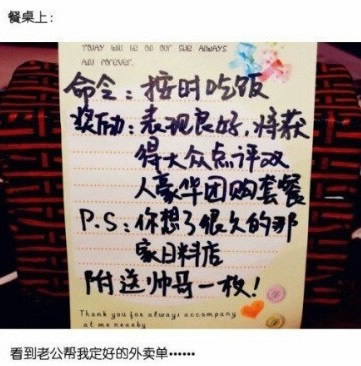 餐桌上：
TODAY WILL BE ON OUR SIDE ALWAYS
AND FOREVER.
命令：按时吃饭
奖励：表现良好，将获
得大众点评双
人豪华团购套餐
P.S：你想了很久的那
家日料店
附送帅哥一枚！
Thank you for always accompany
at me nearby
看到老公帮我定好的外卖单······